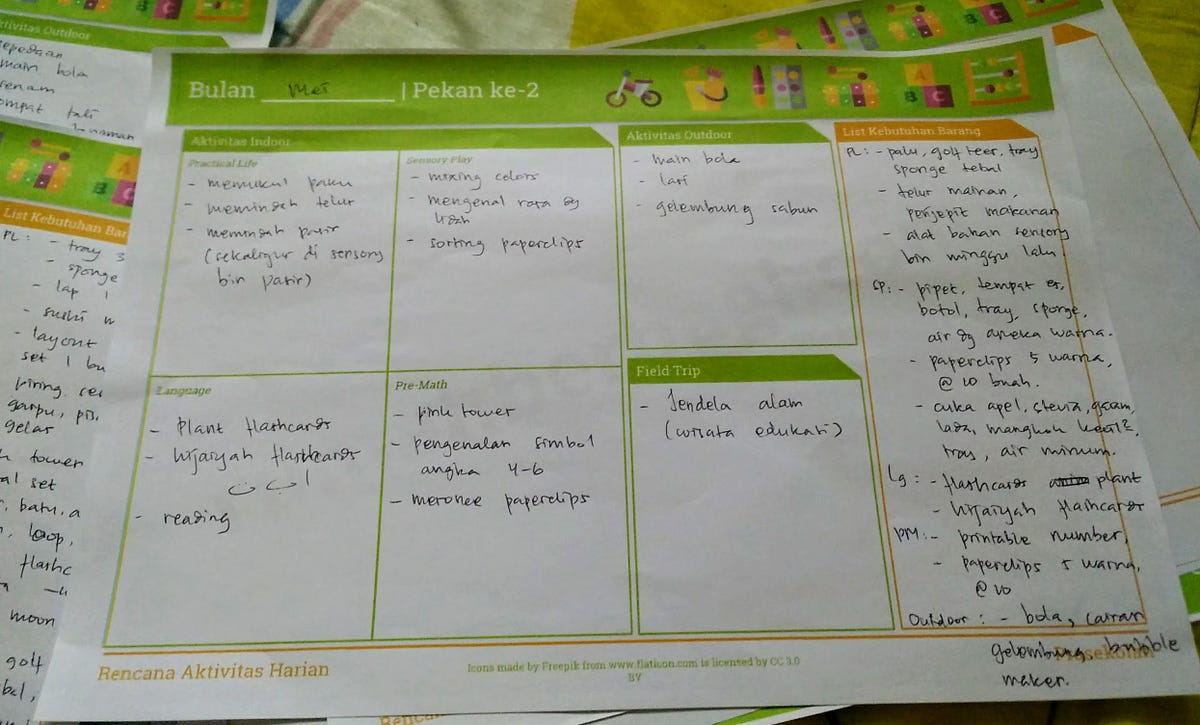 Aktivitas Outdoor
main bola
List Kebutuhan Bar
PL : - tray 3
- sponge
- lap 1
- sushi
- layout
set 1 bu
garpu,
gelar
tower
set
, batu, a
, loop,
flashc
moon
golf
Bulan Mei | Pekan ke-2
Aktivitas Indoor
Practical Life
- memukul paku
- memindah telur
- memindah pasir
(sekaligus di sensory
bin pasir)
Sensory Play
- mixing colors
- mengenal rasa dg
lidah
- sorting paperclips
Language
- Plant flashcards
- hijaiyah flashcards
ا ب ت ث
- reading
Pre-Math
- pink tower
- pengenalan simbol
angka 4-6
- meronce paperclips
Aktivitas Outdoor
- main bola
- lari
- gelembung sabun
Field Trip
- Jendela alam
(wisata edukasi)
List Kebutuhan Barang
PL : - palu, golf teer, tray
sponge tebal
- telur mainan,
penjepit makanan
- alat bahan sensory
bin minggu lalu.
SP : - pipet, tempat es,
botol, tray, sponge,
air dg aneka warna.
- paperclips 5 warna,
@ 10 buah.
- cuka apel, stevia, garam,
lada, mangkok kecil2,
tray, air minum.
Lg : - flashcards plant
- hijaiyah flashcards
PM : - printable number,
- paperclips 5 warna,
@ 10
Outdoor : - bola, cairan
gelembung, bubble
maker.
Rencana Aktivitas Harian
Icons made by Freepik from www.flaticon.com is licensed by CC 3.0
BY